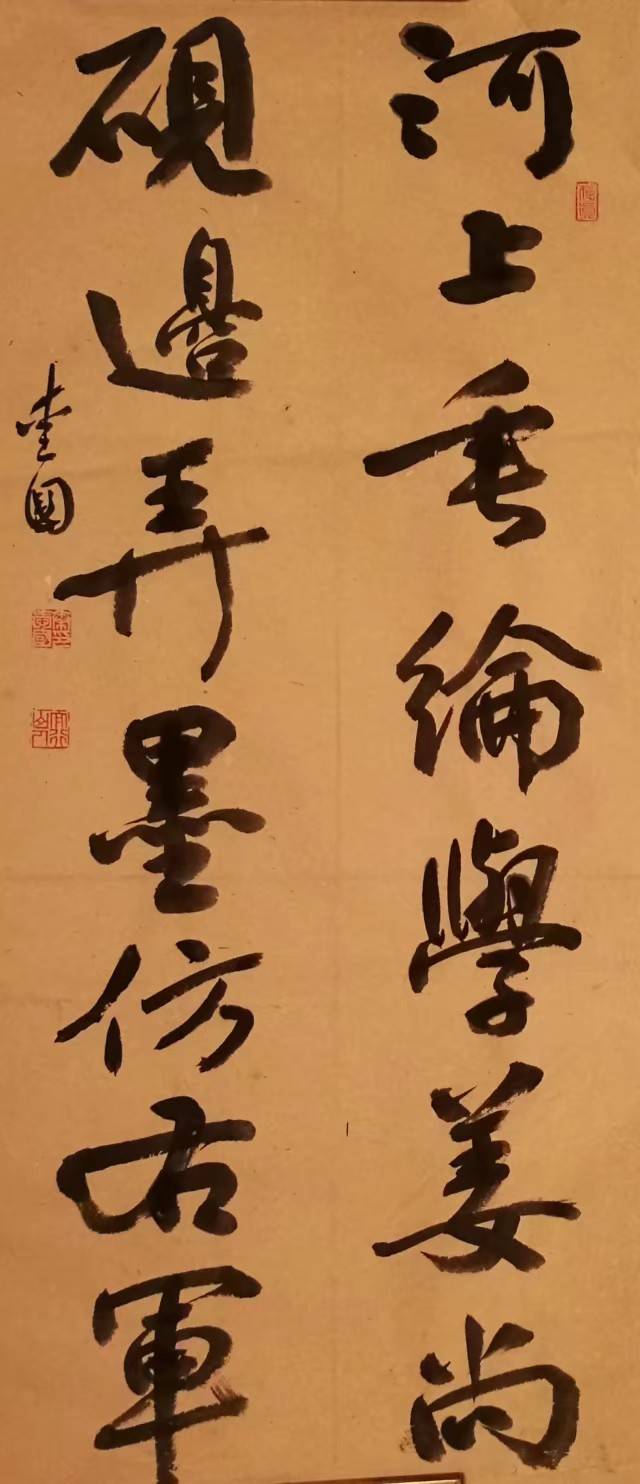 河上垂綸學姜尚
硯邊弄墨仿右軍